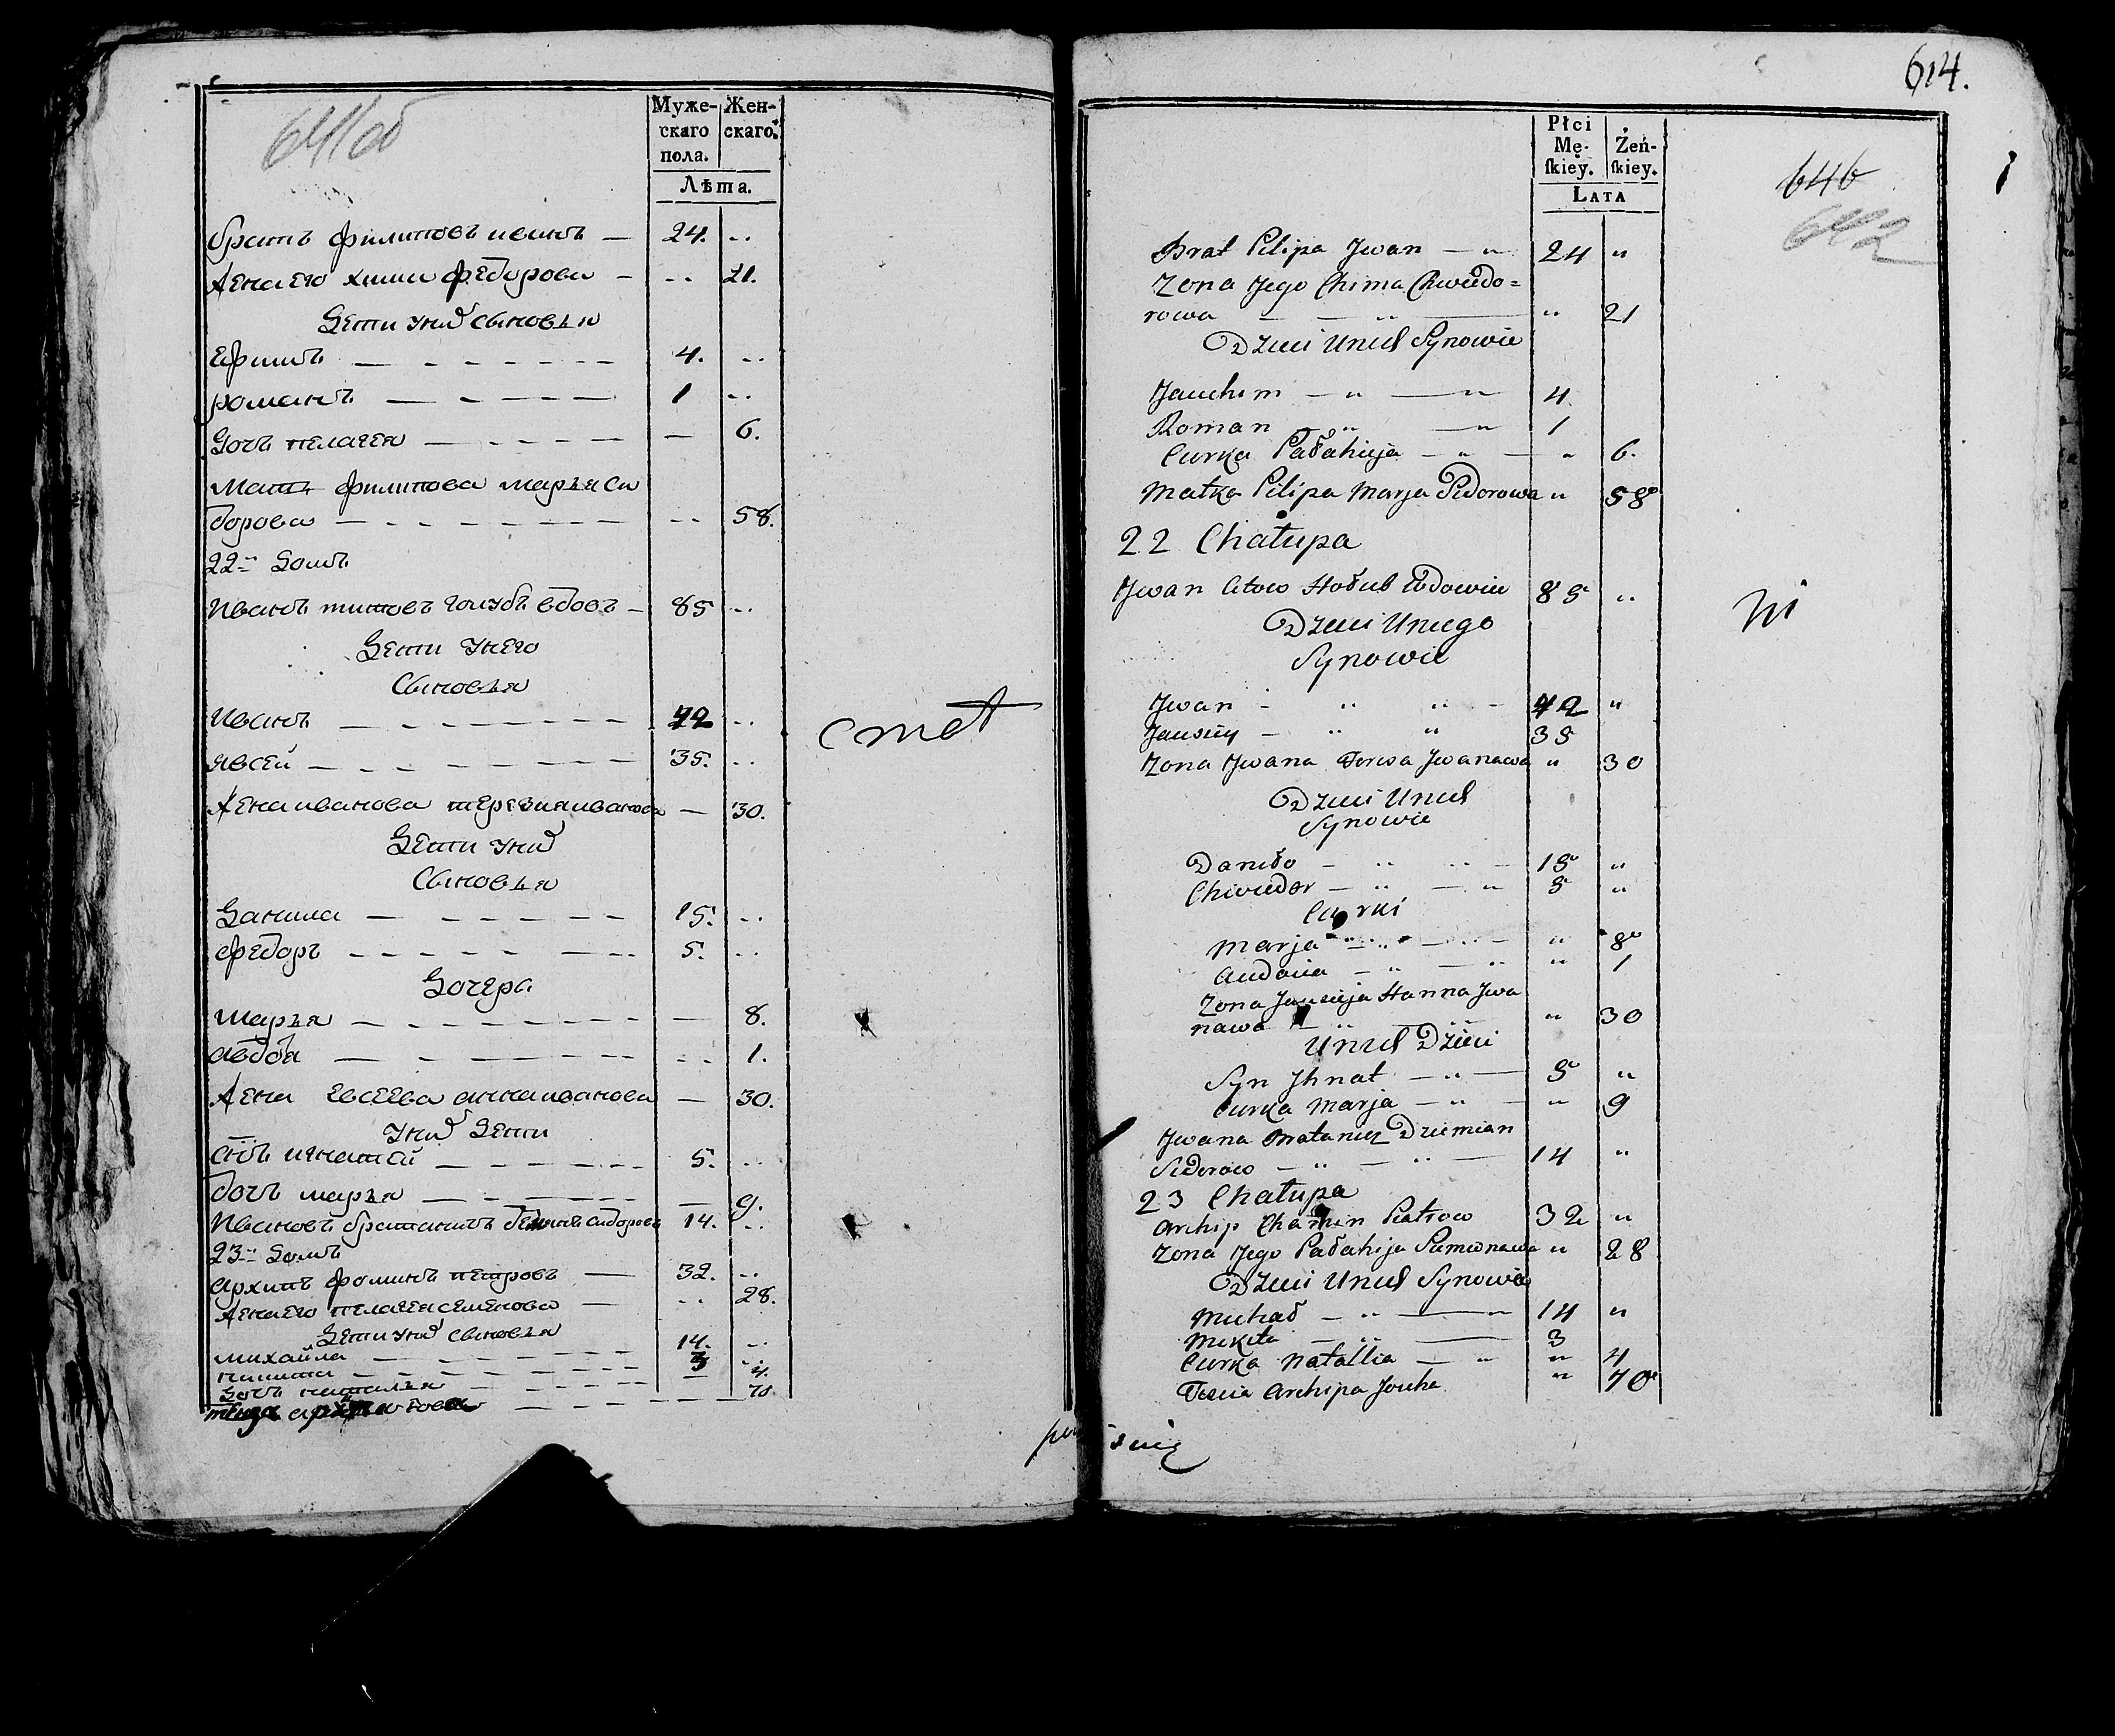 641об
Муже- Жен-
скаго скаго.
пола.
Лѣта.
братъ филиповъ иванъ — 24. ..
жена его химa федорова — .. 21.
Дети у них сыновья
Ефимъ — 4. ..
романъ — 1 ..
Дочь пелагея — — 6.
мать филипова марья си
дорова — .. 58.
22й Домъ
Иванъ титовъ голубъ вдовъ — 85 ..
Дети у него
Сыновья
Иванъ — 42 ..
явсей — 35. ..
Жена иванова терезия иванова — 30.
Дети у них
Сыновья
Данила — 15. ..
федоръ — 5. ..
Дочера
марья — — 8.
авдоя — .. 1.
Жена евсеева анна иванова — 30.
У них Дети
снъ игнатей — 5. ..
дочь марья — — 9.
Ивановъ братаничъ демянъ сидоровъ 14. ..
23й Домъ
архипъ фоминъ петровъ — 32. ..
Жена его пелагея семенова — .. 28.
Дети у них сыновья
михайла — 14. ..
никита — 3 ..
Дочь наталья — — 4.
теща архипова — 70
614.
Płci Żeń-
Mę- ſkiey.
ſkiey.
LATA
646
642
Brat Pilipa Jwan — " 24 "
Zona Jego Chima Chwiedo=
rowa — — " " 21
Dzieci Unich Synowie
Jauchim — " — " 4
Roman " — " 1
Curka Pałahieja — " — " 6.
Matka Pilipa Marja Sidorowa " 58
22 Chałupa
Jwan Citow Hołub Wdowiec 85 "
Dzieci Uniego
Synowie
Jwan - " " - 42 "
Jausiey - " " 35
Zona Jwana Teresa Jwanawa " 30
Dzieci Unich
Synowie
Daniło — " " — 15 "
Chwiedor — " — " 5 "
Curki
Marja — " — " 8
Audocia — " — " " 1
Zona Jausieja Hanna Jwa
nawa — " — " " 30
Unich Dzieci
Syn Jhnat — " — 5 "
Curka Marja — " — " 9
Jwana Bratanicz Dziemian
Sidorow — " — " — 14 "
23 Chałupa
Archip Chamin Piatrow 32 "
Zona Jego Pałahija Siamionawa " 28
Dzieci Unich Synowie
Michał — " — " 14 "
Mikita — " — 3
Curka Natallia — " " 4
Tescia Archipa " 70